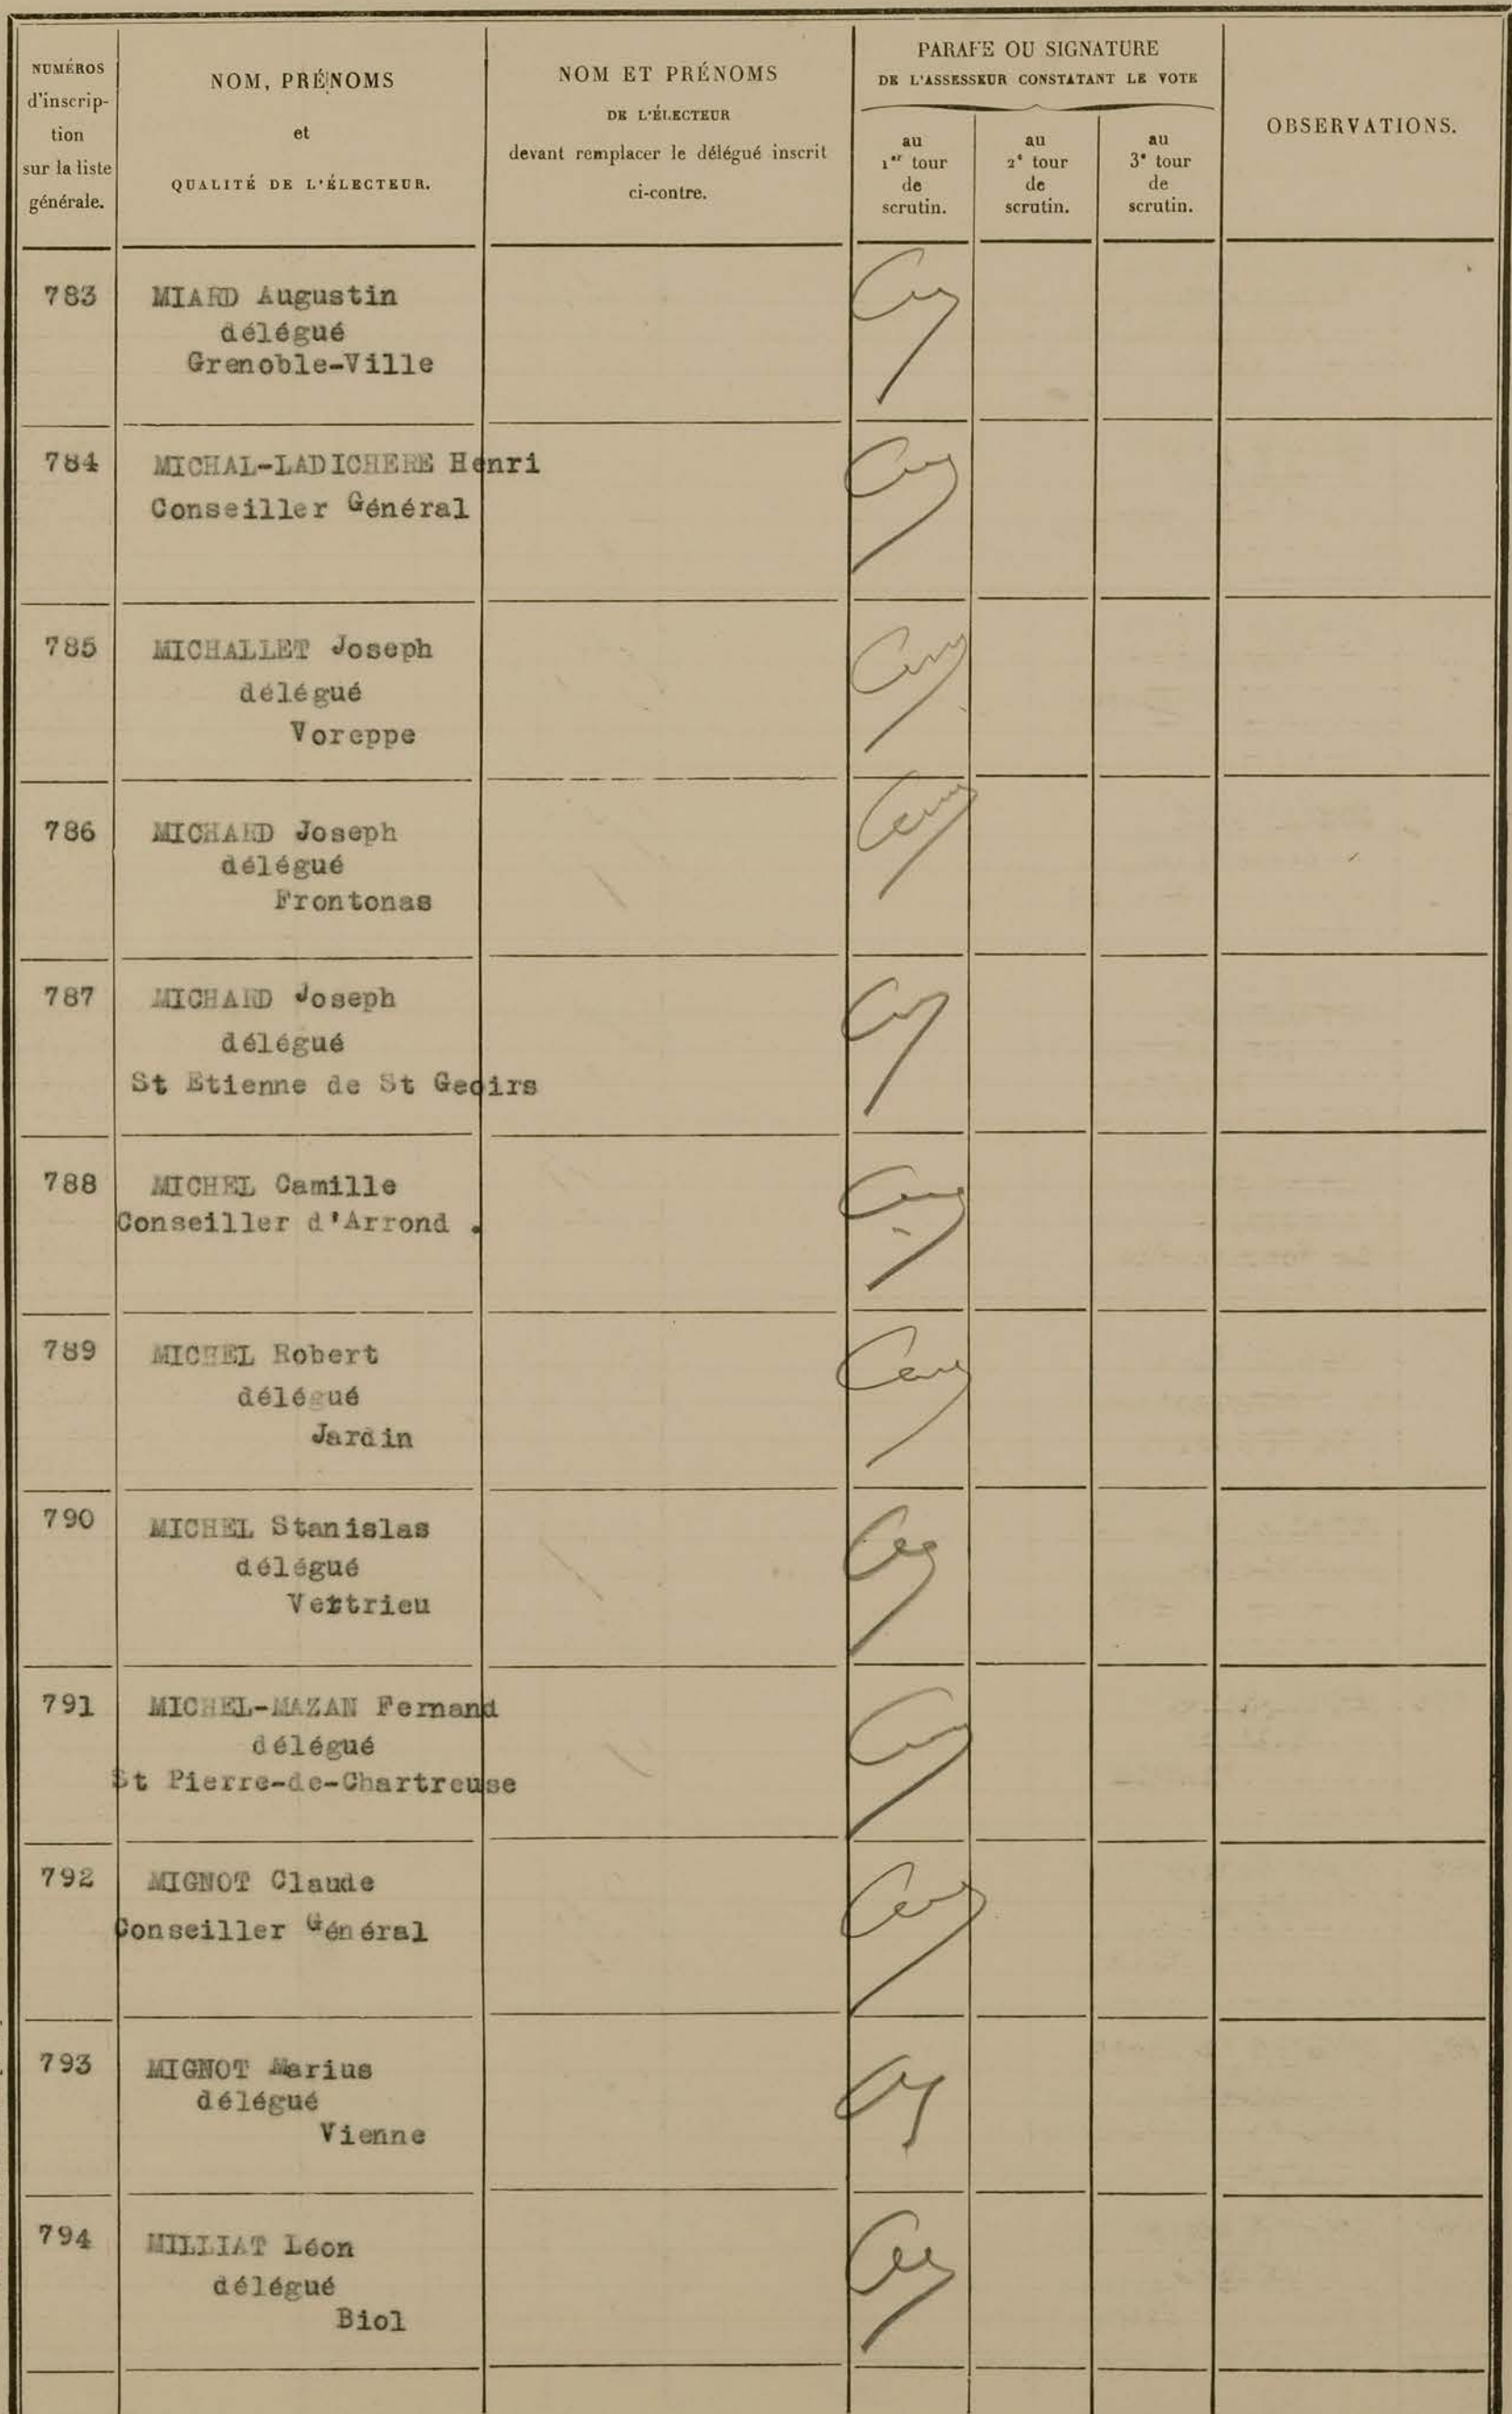 NUMÉROS
d'inscrip-
tion
sur la liste
générale.
NOM, PRÉNOMS
et
QUALITÉ DE L'ÉLECTEUR.
NOM ET PRÉNOMS
DE L'ÉLECTEUR
devant remplacer le délégué inscrit
ci-contre.
PARAFE OU SIGNATURE
DE L'ASSESSEUR CONSTATANT LE VOTE
au
1er tour
de
scrutin.
au
2e tour
de
scrutin.
au
3e tour
de
scrutin.
OBSERVATIONS.
783 MIARD Augustin
délégué
Grenoble-Ville
784 MICHAL-LADICHERE Henri
Conseiller Général
785 MICHALLET Joseph
délégué
Voreppe
786 MICHARD Joseph
délégué
Frontonas
787 MICHARD Joseph
délégué
St Etienne de St Geoirs
788 MICHEL Camille
Conseiller d'Arrond .
789 MICHEL Robert
délégué
Jardin
790 MICHEL Stanislas
délégué
Vertrieu
791 MICHEL-MAZAN Fernand
délégué
St Pierre-de-Chartreuse
792 MIGNOT Claude
Conseiller Général
793 MIGNOT Marius
délégué
Vienne
794 MILLIAT Léon
délégué
Biol